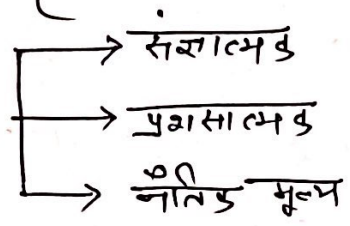 → संज्ञात्मक
→ प्रशासात्मक
→ नैतिक मूल्य